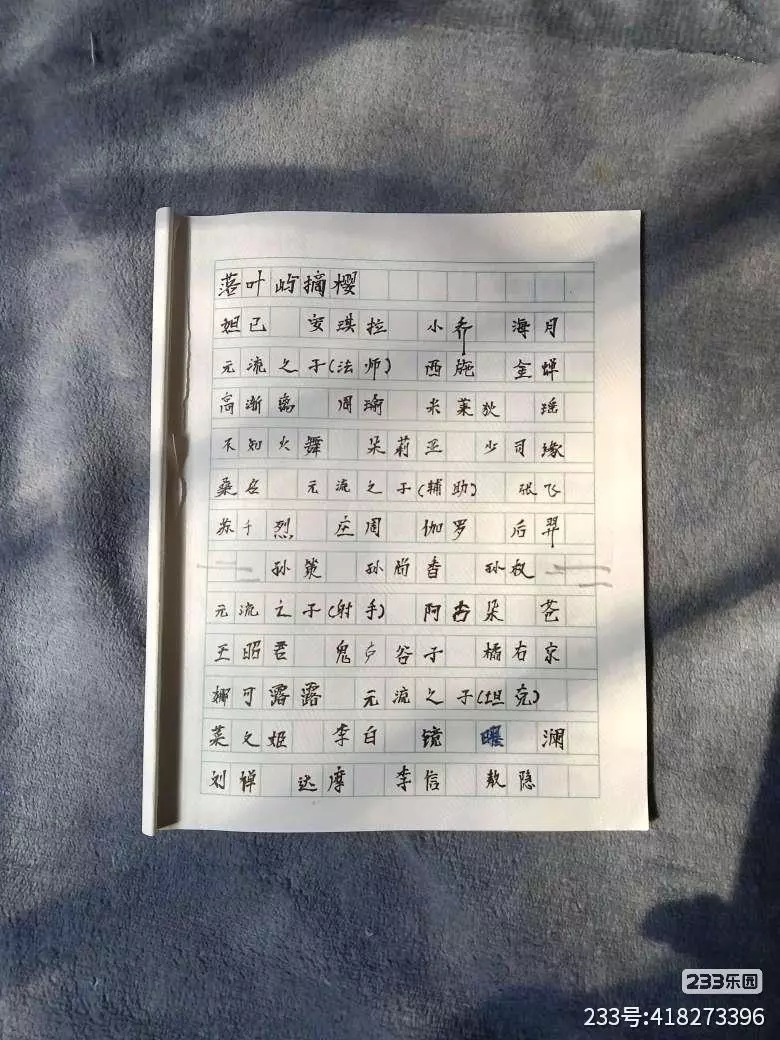 落叶屿摘樱
妲己 安琪拉 小乔 海月
元流之子(法师) 西施 金蝉
高渐离 周瑜 米莱狄 瑶
不知火舞 朵莉亚 少司缘
桑启 元流之子(辅助) 张飞
苏烈 庄周 伽罗 后羿
孙策 孙尚香 孙权
元流之子(射手) 阿古朵 苍
王昭君 鬼卢谷子 橘右京
娜可露露 元流之子(坦克)
菜文姬 李白 镜 曜 澜
刘禅 达摩 李信 敖隐
233乐园
233号:418273396